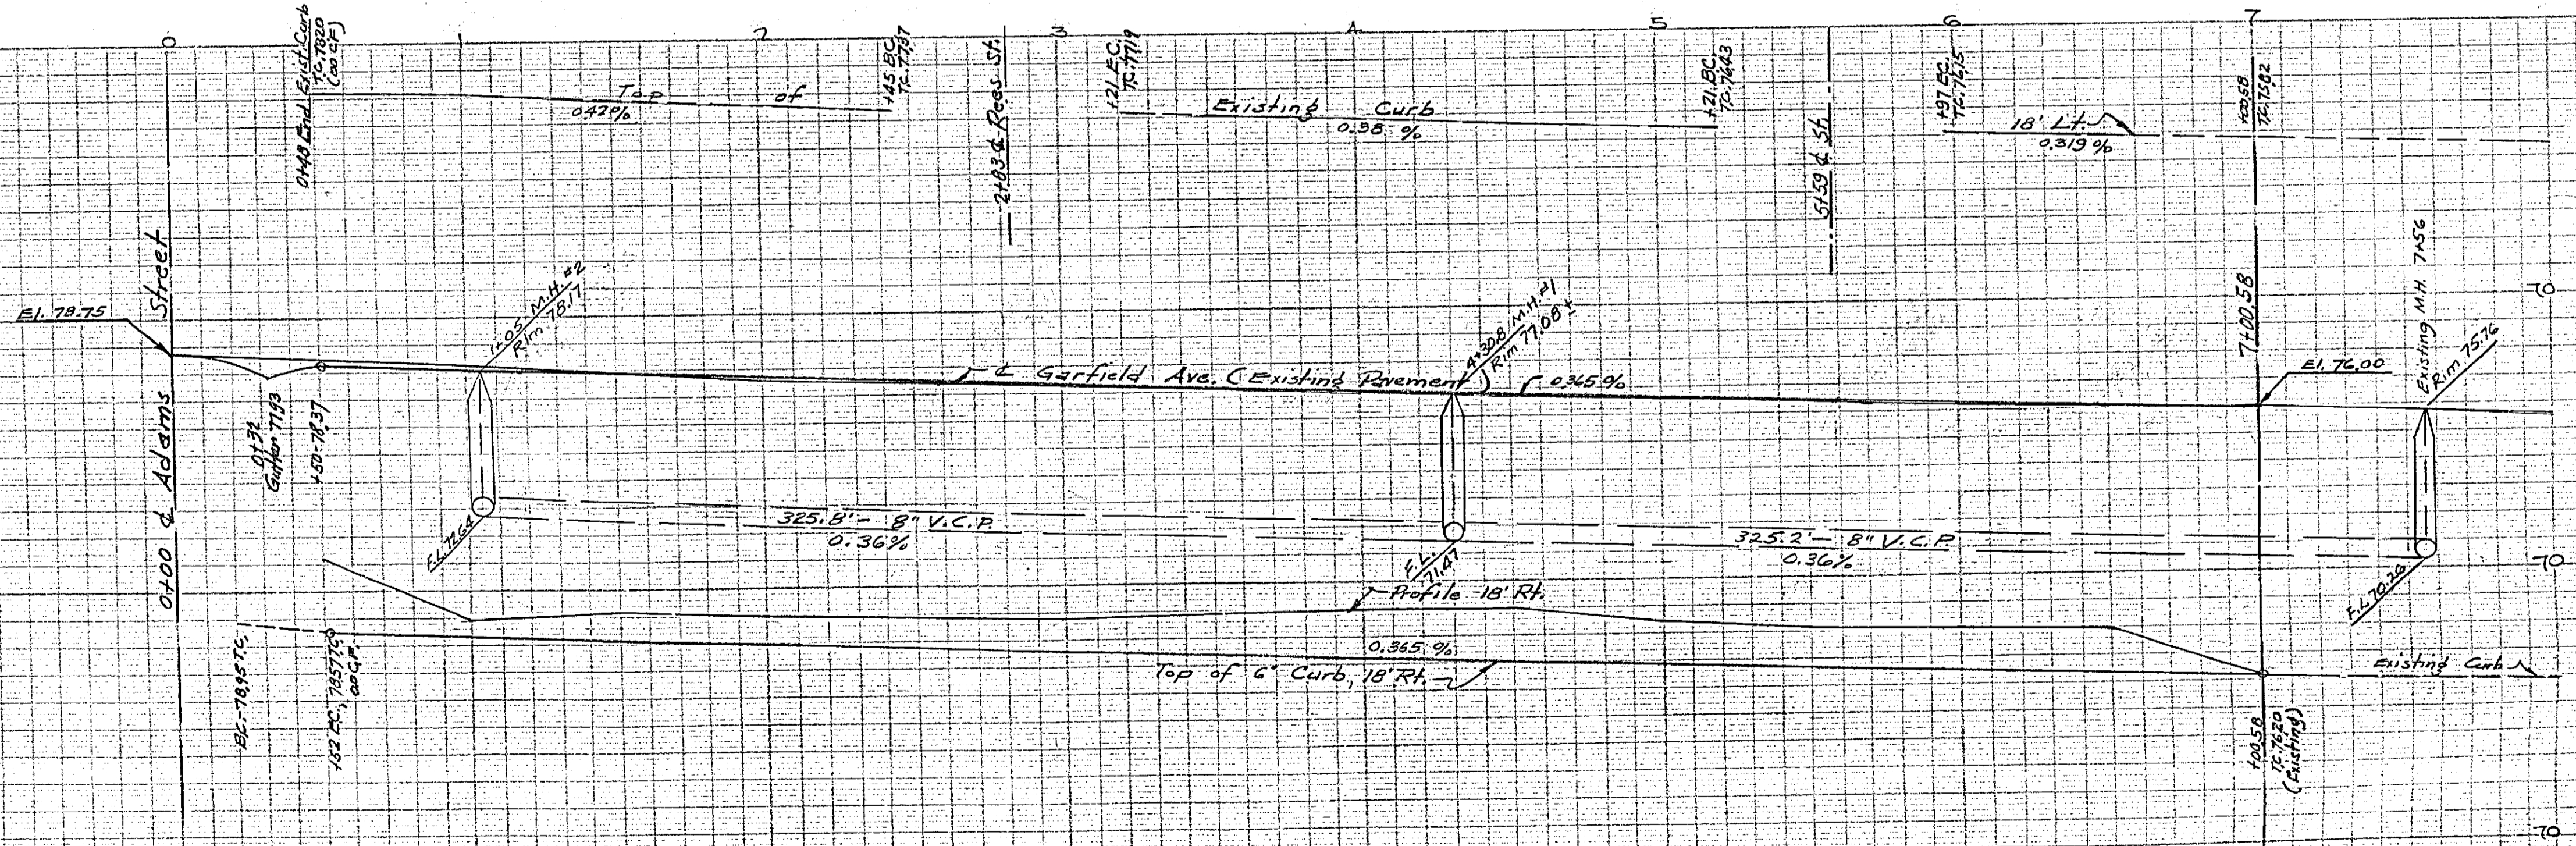 0
2
3
4
5
6
7
0+48 End Exist. Curb
T.C. 78.20
(0.0 C.F.)
Top of
0.42%
+45 B.C.
T.C. 77.37
2+83 ℄ Rees St.
+21 E.C.
T.C. 77.19
Existing Curb
0.38 %
+21 B.C.
T.C. 76.43
5+59 ℄ St.
+97 B.C.
T.C. 76.15
18' Lt.
0.319 %
+00.58
T.C. 75.82
0+00 ℄ Adams Street
El. 78.75
0+32
Gutter 77.93
+50-78.37
1+05 M.H. #2
Rim 78.17
℄ Garfield Ave. (Existing Pavement)
4+30.8 M.H. #1
Rim 77.08 ±
0.365 %
7+00.58
El. 76.00
Existing M.H. 7+56
Rim 75.76
70
F.L. 72.64
325.8' - 8" V.C.P.
0.36%
F.L.
71.47
325.2' - 8" V.C.P.
0.36%
F.L. 70.26
70
Profile - 18' Rt.
BC-78.95 T.C.
+52 E.C., 78.57 T.C.
0.0 C.F.
0.365 %
Top of 6" Curb, 18' Rt.
Existing Curb
+00.58
T.C. 76.20
(Existing)
70